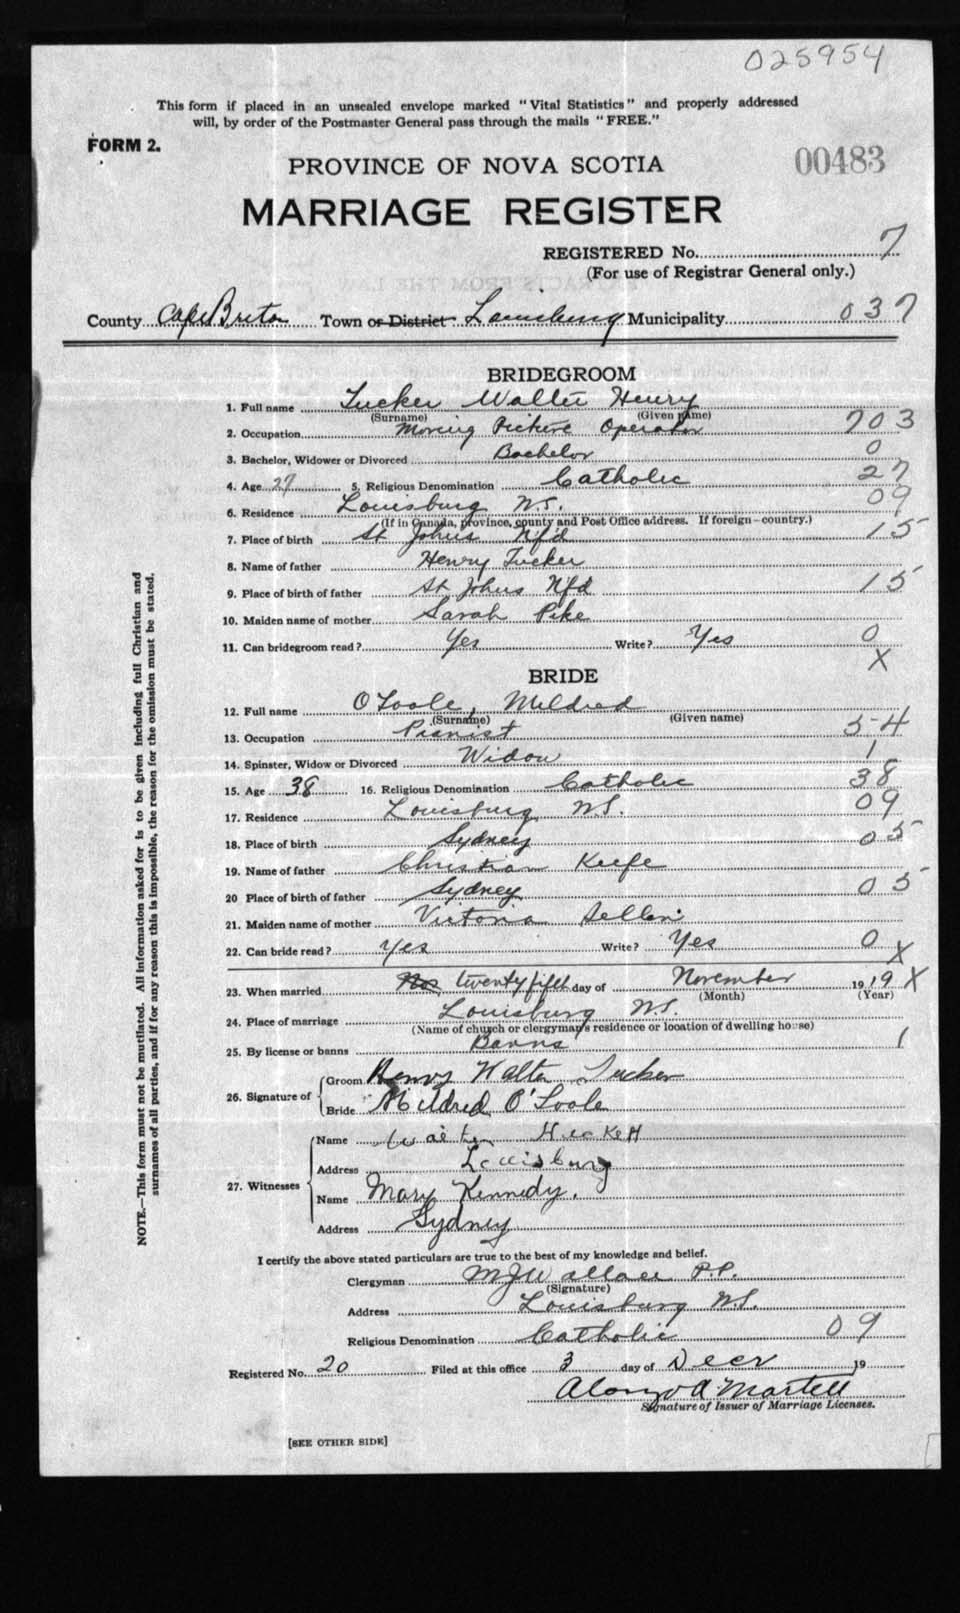 025954
This form if placed in an unsealed envelope marked "Vital Statistics" and properly addressed
will, by order of the Postmaster General pass through the mails "FREE."
FORM 2.
PROVINCE OF NOVA SCOTIA
00483
MARRIAGE REGISTER
REGISTERED No. 7
(For use of Registrar General only.)
County Cape Breton Town or District Louisburg Municipality 037
BRIDEGROOM
1. Full name Tucker Walter Henry
(Surname) (Given name)
2. Occupation Moving Picture Operator 703
3. Bachelor, Widower or Divorced Bachelor 0
4. Age 27 5. Religious Denomination Catholic 27
6. Residence Louisburg N.S. 09
(If in Canada, province, county and Post Office address. If foreign—country.)
7. Place of birth St Johns Nfd 15
8. Name of father Henry Tucker
9. Place of birth of father St Johns Nfd 15
10. Maiden name of mother Sarah Pike
11. Can bridegroom read? Yes Write? Yes 0
X
BRIDE
12. Full name O'Toole, Mildred
(Surname) (Given name)
13. Occupation Pianist 54
14. Spinster, Widow or Divorced Widow 1
15. Age 38 16. Religious Denomination Catholic 38
17. Residence Louisburg N.S. 09
18. Place of birth Sydney 05
19. Name of father Christian Keefe
20 Place of birth of father Sydney 05
21. Maiden name of mother Victoria
22. Can bride read? Yes Write? Yes 0 X
23. When married Nov twenty fifth day of November 19 19 X
(Month) (Year)
24. Place of marriage Louisburg N.S.
(Name of church or clergyman's residence or location of dwelling house)
25. By license or banns Banns 1
26. Signature of Groom Henry Walter Tucker
Bride Mildred O'Toole
27. Witnesses Name Hackett
Address Louisburg
Name Mary Kennedy.
Address Sydney
I certify the above stated particulars are true to the best of my knowledge and belief.
Clergyman M J Wallace P.P.
(Signature)
Address Louisburg N.S.
Religious Denomination Catholic 09
Registered No. 20 Filed at this office 3 day of Decr 19
Alonzo A Martell
Signature of Issuer of Marriage Licenses.
[SEE OTHER SIDE]
NOTE.—This form must not be mutilated. All information asked for is to be given including full Christian and
surnames of all parties, and if for any reason this is impossible, the reason for the omission must be stated.